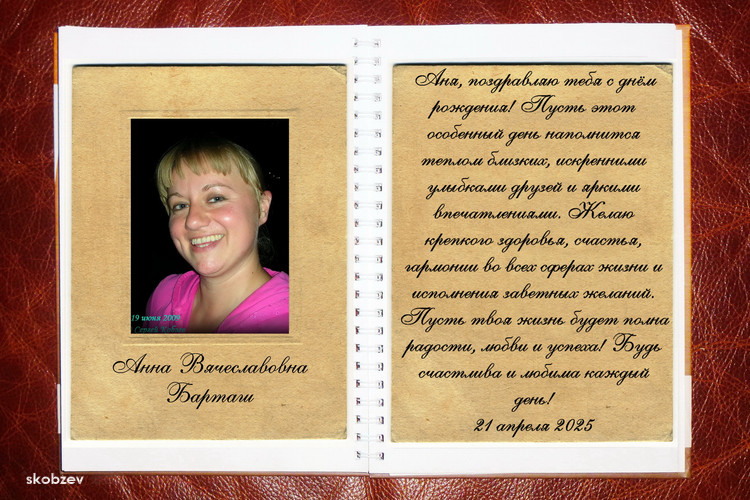 19 июня 2009
Анна Вячеславовна
Барташ
Аня, поздравляю тебя с днём
рождения! Пусть этот
особенный день наполнится
теплом близких, искренними
улыбками друзей и яркими
впечатлениями. Желаю
крепкого здоровья, счастья,
гармонии во всех сферах жизни и
исполнения заветных желаний.
Пусть твоя жизнь будет полна
радости, любви и успеха! Будь
счастлива и любима каждый
день!
21 апреля 2025
skobzev